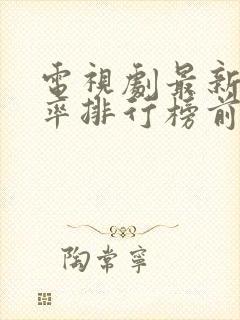 電視劇最新
率排行榜前
陶常寧